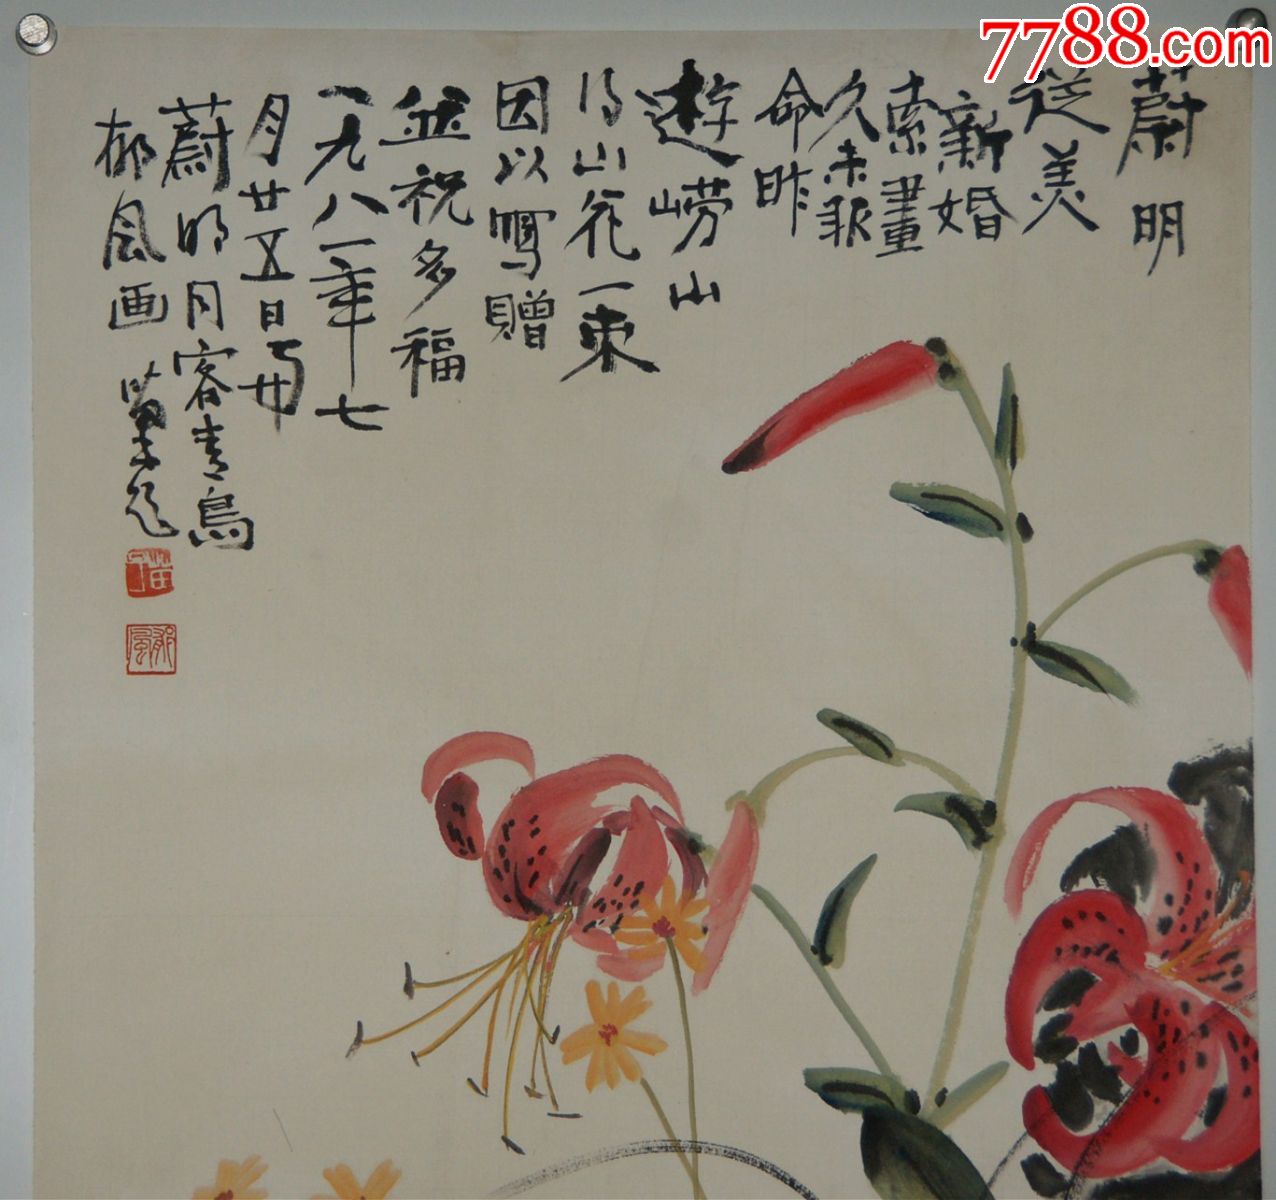 7788.com
蔚明
從美
新婚
索畫
久未报
命昨
遊嶗山
得山花一束
因以寫贈
並祝多福
一九八一年七
月廿五日与
蔚明同客青島
郁风画苗子题
郁風